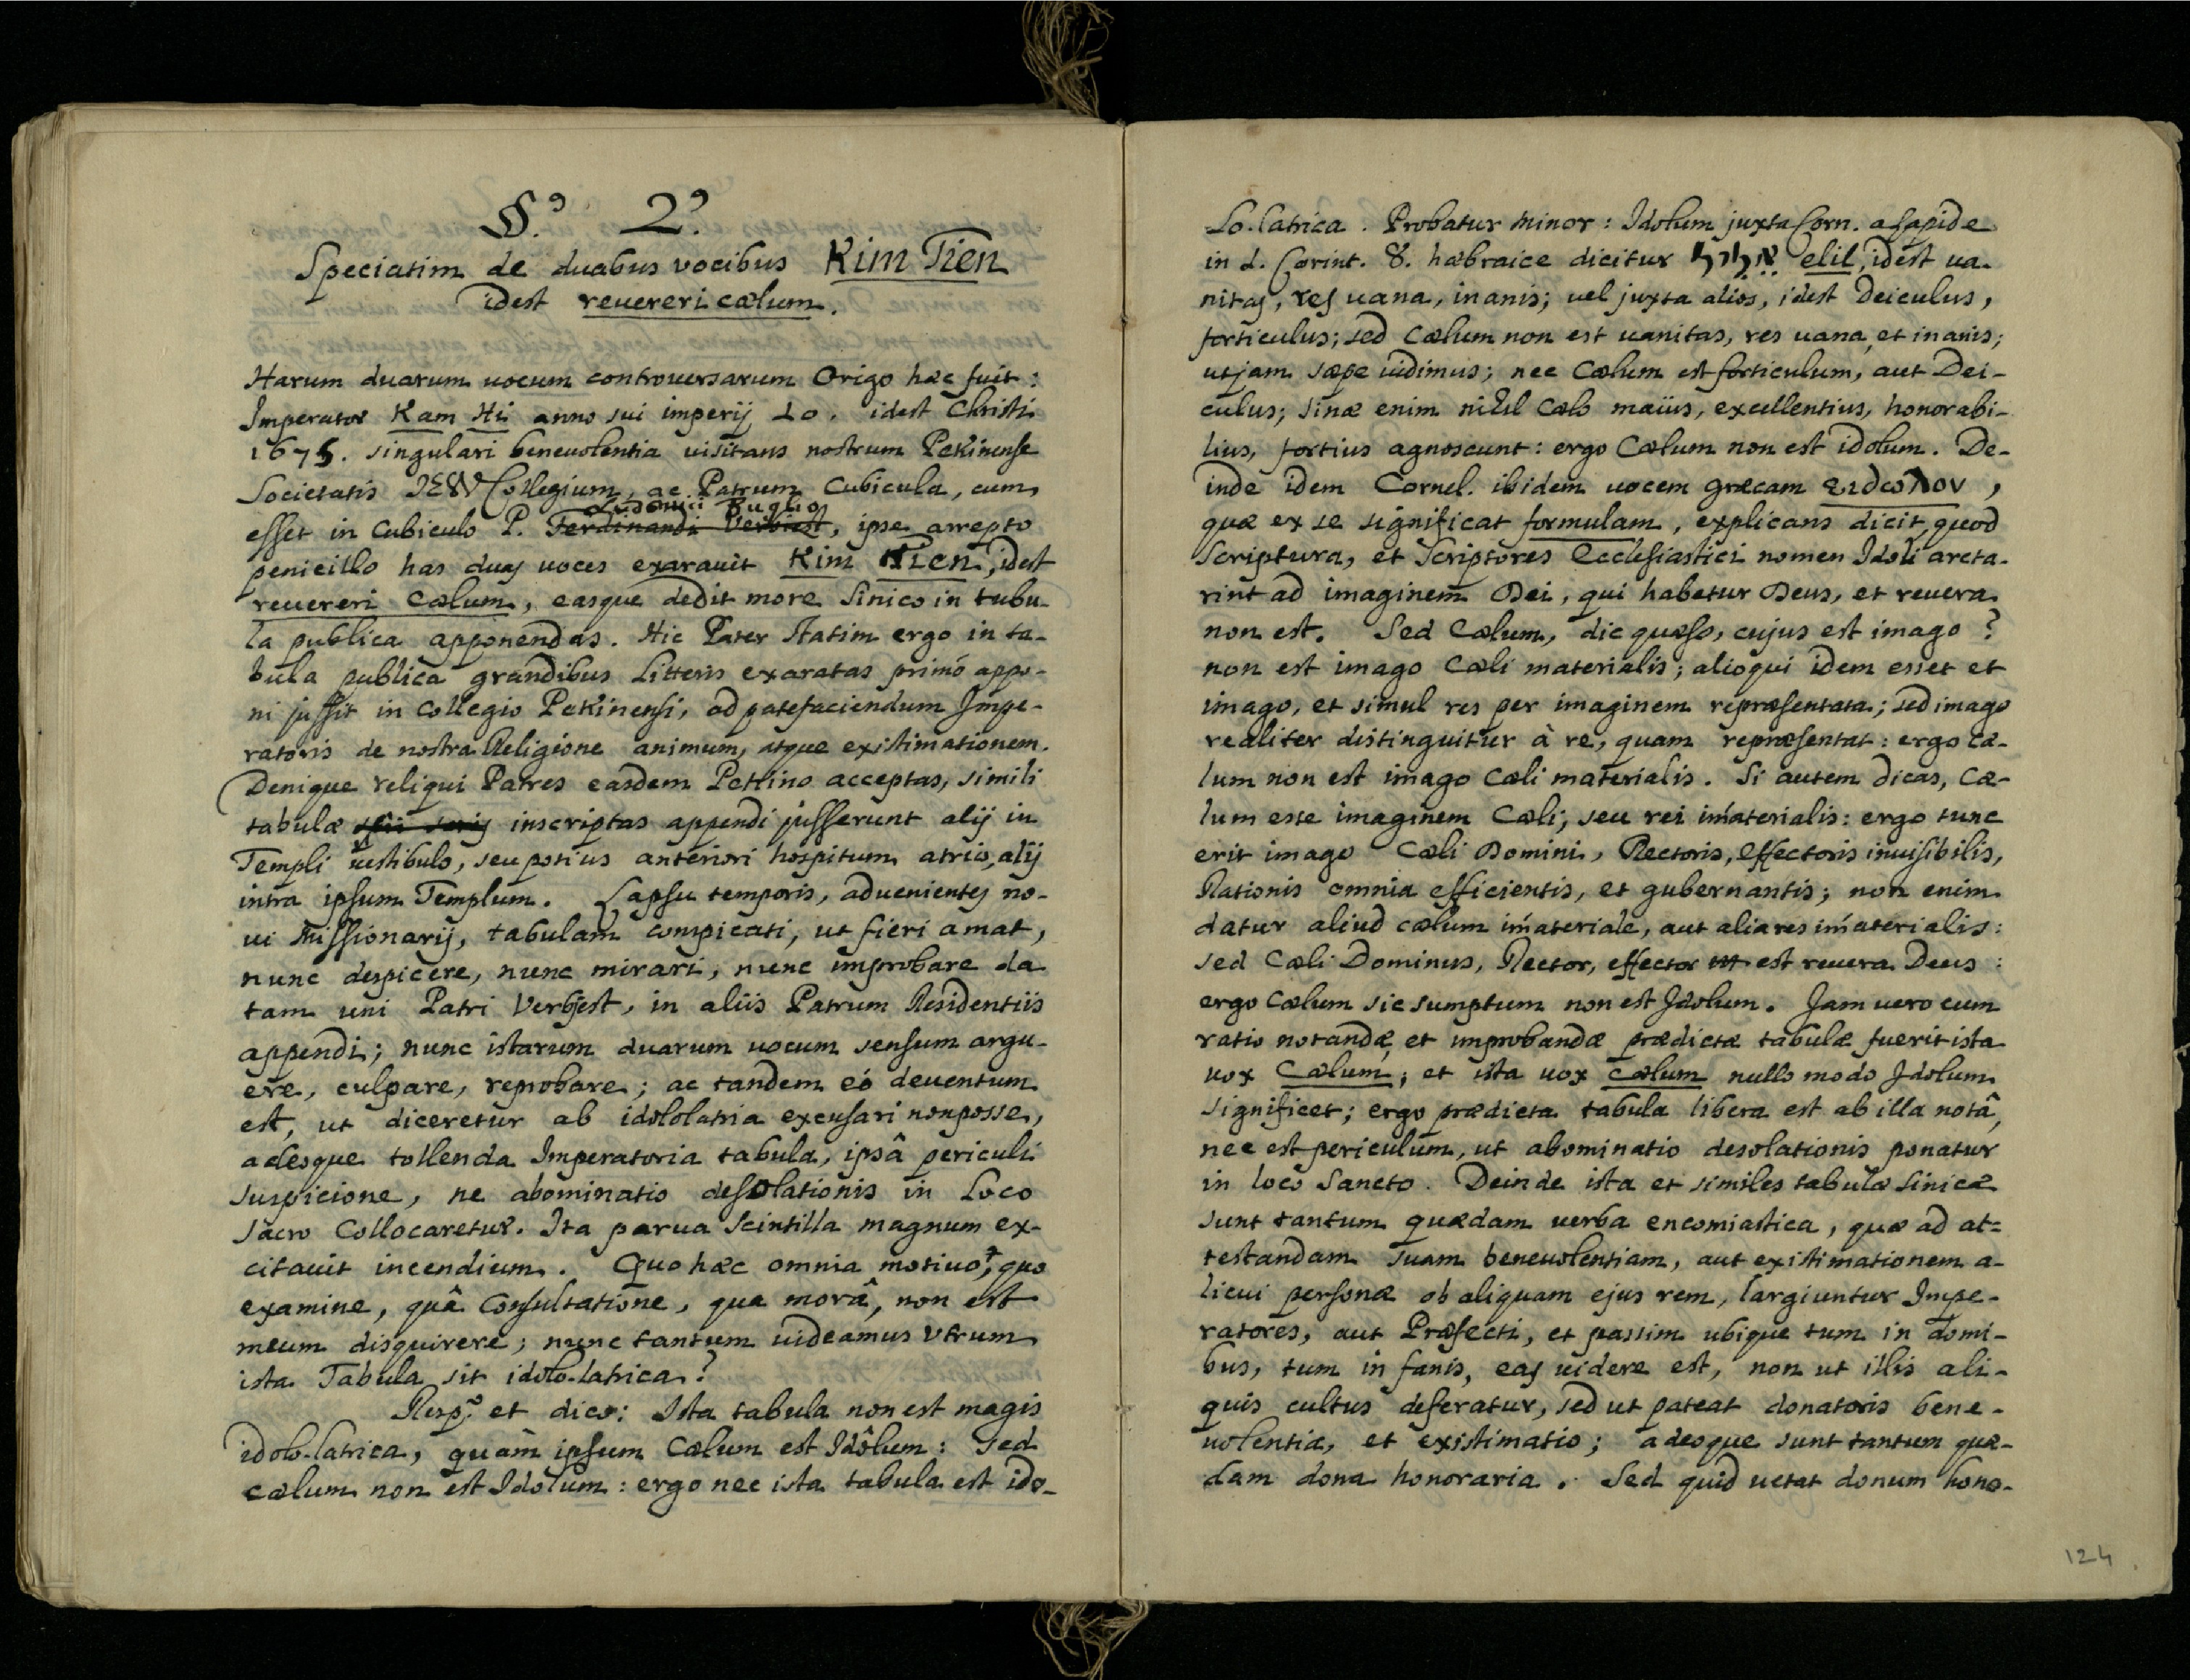 §.º 2.º
Speciatim de duabus vocibus Kim Tien
idest reuereri cælum.
Harum duarum uocum controuersarum Origo hæc fuit:
Imperator Kam Hi anno sui imperij 10. idest Christi
1675. singulari beneuolentia uisitans nostrum Pekinense
Societatis IESV Collegium, ac Patrum Cubicula, cum
Ludouici Buglio
esset in Cubiculo P. Ferdinandi Verbiest, ipse arrepto
penicillo has duas uoces exarauit Kim Tien, idest
reuereri Cælum, easque dedit more Sinico in tabu-
la publica apponendas. Hic Pater statim ergo in ta-
bula publica grandibus Litteris exaratas primò appo-
ni jussit in Collegio Pekinensi, ad patefaciendum Impe-
ratoris de nostra Religione animum, atque existimationem.
Denique reliqui Patres easdem Pekino acceptas, simili
tabulæ inscriptas appendi jusserunt alij in
Templi uestibulo, seu potius anteriori hospitum atrio, alij
intra ipsum Templum. Lapsu temporis, aduenientes no-
ui Missionarij, tabulam conspicati, ut fieri amat,
nunc despicere, nunc mirari, nunc improbare da
tam uni Patri Verbiest, in aliis Patrum Residentiis
appendi; nunc istarum duarum uocum sensum argu-
ere, culpare, reprobare; ac tandem eò deuentum
est, ut diceretur ab idololatria excusari non posse,
adeoque tollenda Imperatoria tabula, ipsâ periculi
suspicione, ne abominatio desolationis in Loco
sacro Collocaretur. Ita parua scintilla magnum ex-
citauit incendium. Quo hæc omnia motiuo, quo
examine, quâ Consultatione, qua morâ, non est
meum disquirere; nunc tantum uideamus Vtrum
ista Tabula sit idolo-latrica?
Resp.º et dico: Ista tabula non est magis
idolo-latrica, quàm ipsum Cælum est Idôlum: sed
cælum non est Idolum: ergo nec ista tabula est ido-
lo-latrica. Probatur Minor: Idolum juxta Corn. a Lapide
in 1. Corint. 8. hæbraice dicitur אליל elil, idest ua-
nitas, res uana, inanis; uel juxta alios, idest Deiculus,
forticulus; sed Cælum non est uanitas, res uana, et inanis;
ut jam sæpe uidimus; nec Cælum est forticulum, aut Dei-
culus; Sinæ enim nihil Cælo maius, excellentius, honorabi-
lius, fortius agnoscunt: ergo Cælum non est idolum. De-
inde idem Cornel. ibidem uocem græcam ειδωλον,
quæ ex se significat formulam, explicans dicit, quod
Scriptura, et Scriptores Ecclesiastici nomen Idoli arcta-
rint ad imaginem Dei, qui habetur Deus, et reuera
non est. Sed Cælum, dic quæso, cujus est imago?
non est imago Cæli materialis; alioqui idem esset et
imago, et simul res per imaginem repræsentata; sed imago
realiter distinguitur à re, quam repræsentat: ergo Cæ-
lum non est imago Cæli materialis. Si autem dicas, Cæ-
lum esse imaginem Cæli, seu rei im̃aterialis: ergo tunc
erit imago Cæli Domini, Rectoris, Effectoris inuisibilis,
Rationis omnia efficientis, et gubernantis; non enim
datur aliud cælum im̃ateriale, aut alia res im̃aterialis:
sed Cæli Dominus, Rector, effector est reuera Deus:
ergo Cælum sic sumptum non est Idolum. Jam uero cum
ratio notandæ, et improbandæ prædictæ tabulæ fuerit ista
uox Cælum; et ista uox cælum nullo modo Idolum
significet; ergo prædicta tabula libera est ab illa notâ,
nec est periculum, ut abominatio desolationis ponatur
in loco Sancto. Deinde ista et similes tabulæ Sinicæ
sunt tantum quædam uerba encomiastica, quæ ad at=
testandam suam beneuolentiam, aut existimationem a-
licui personæ ob aliquam ejus rem, largiuntur Impe-
ratores, aut Præfecti, et passim ubique tum in domi-
bus, tum in fanis, eas uidere est, non ut illis ali-
quis cultus deferatur, sed ut pateat donatoris bene-
uolentia, et existimatio; adeoque sunt tantum quæ-
dam dona honoraria. Sed quid uetat donum hono-
124